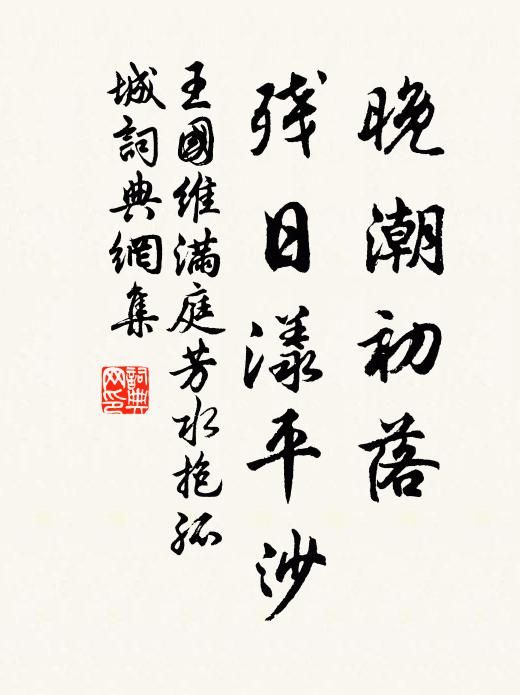 晚潮初落
残日漾平沙
王國维满庭芳水抱孤
城詞典網集
詞典网印